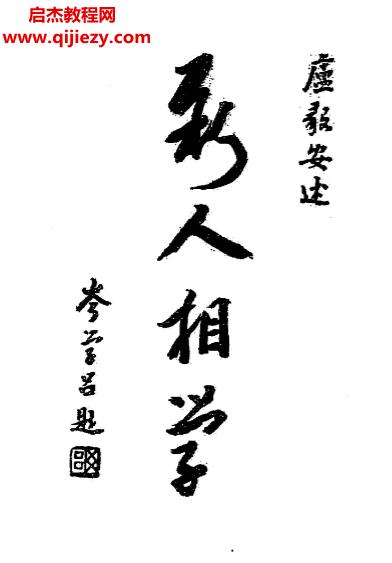 启杰教程网
www.qijiezy.com
盧毅安述
新人相学
岑学吕題